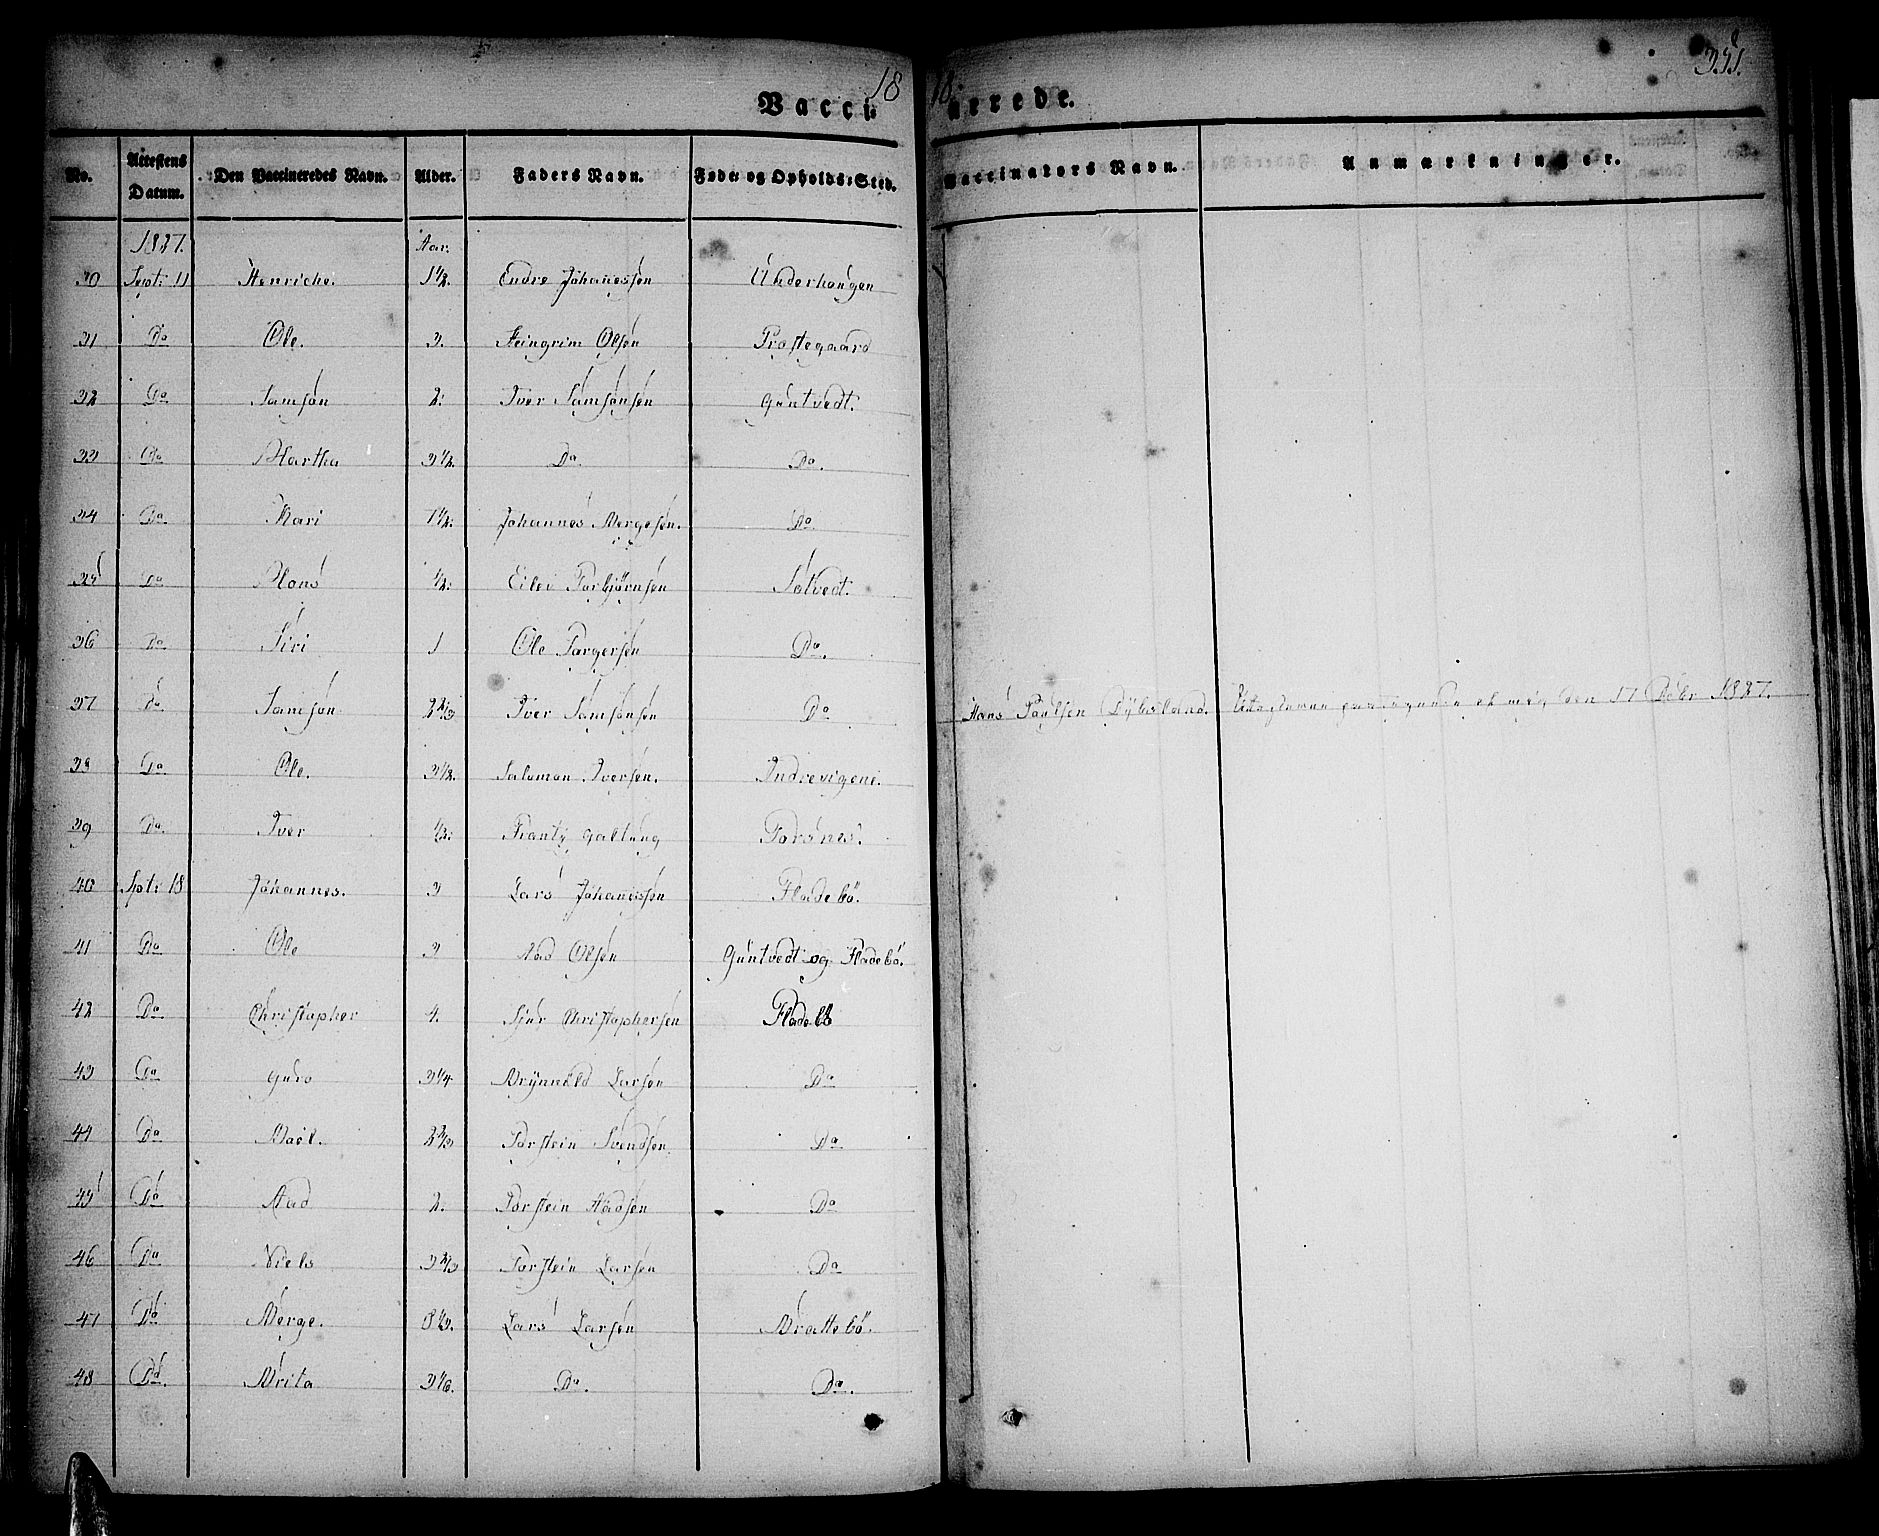 18 18 351.
Vacci: nerede.
No. | Attestens Datum. | Den Vaccineredes Navn. | Alder. | Faders Navn. | Føde: og Opholds: Sted. | Vaccinators Navn. | Anmærkninger.
1837. | Aar.
30 | Sept: 11 | Henriche. | 1 1/2. | Endre Johanessen | Underhougen
31 | Do | Ole. | 3. | Steingrim Olsen | Prostegaard
32 | Do | Samson | 2. | Iver Samsonsen | Guntvedt.
33 | Do | Martha | 3 1/2. | Do. | Do.
34 | Do | Kari | 1 1/2. | Johannes Bergesen. | Do
35 | Do | Hans | 1/2. | Eilev Torbjörnsen | Solvedt.
36 | Do | Siri | 1 | Ole Torgersen | Do.
37 | Do | Samson | 2 2/3 | Iver Samsonsen | Do | Hans Paulsen Dybsland. | den 17 Decbr 1837.
38 | Do | Ole. | 3 1/2. | Salamon Iversen. | Indrevigene.
39 | Do. | Iver | 1/2. | Frantz Galtung | Torsnes.
40 | Spt: 18 | Johannes. | 3 | Lars Johanessen | Fladebö.
41 | Do | Ole | 3 | Aad Olsen | Guntvedt og Fladebö.
42 | Do | Christopher | 4. | Sjur Christophersen | Fladebö
43 | Do | Guro | 3 1/4 | Brynneld Larsen | Do
44 | Do | 2 2/3 | Torstein Svendsen. | Do
45 | Do | Aad | 2. | Torstein Aadsen | Do
46 | Do | Niels | 3 2/3 | Torstein Larsen | Do
47 | Do | Berge. | 8 1/2. | Lars Larsen | Brattebö.
48 | Do. | Brita | 3 1/6. | Do. | Do.